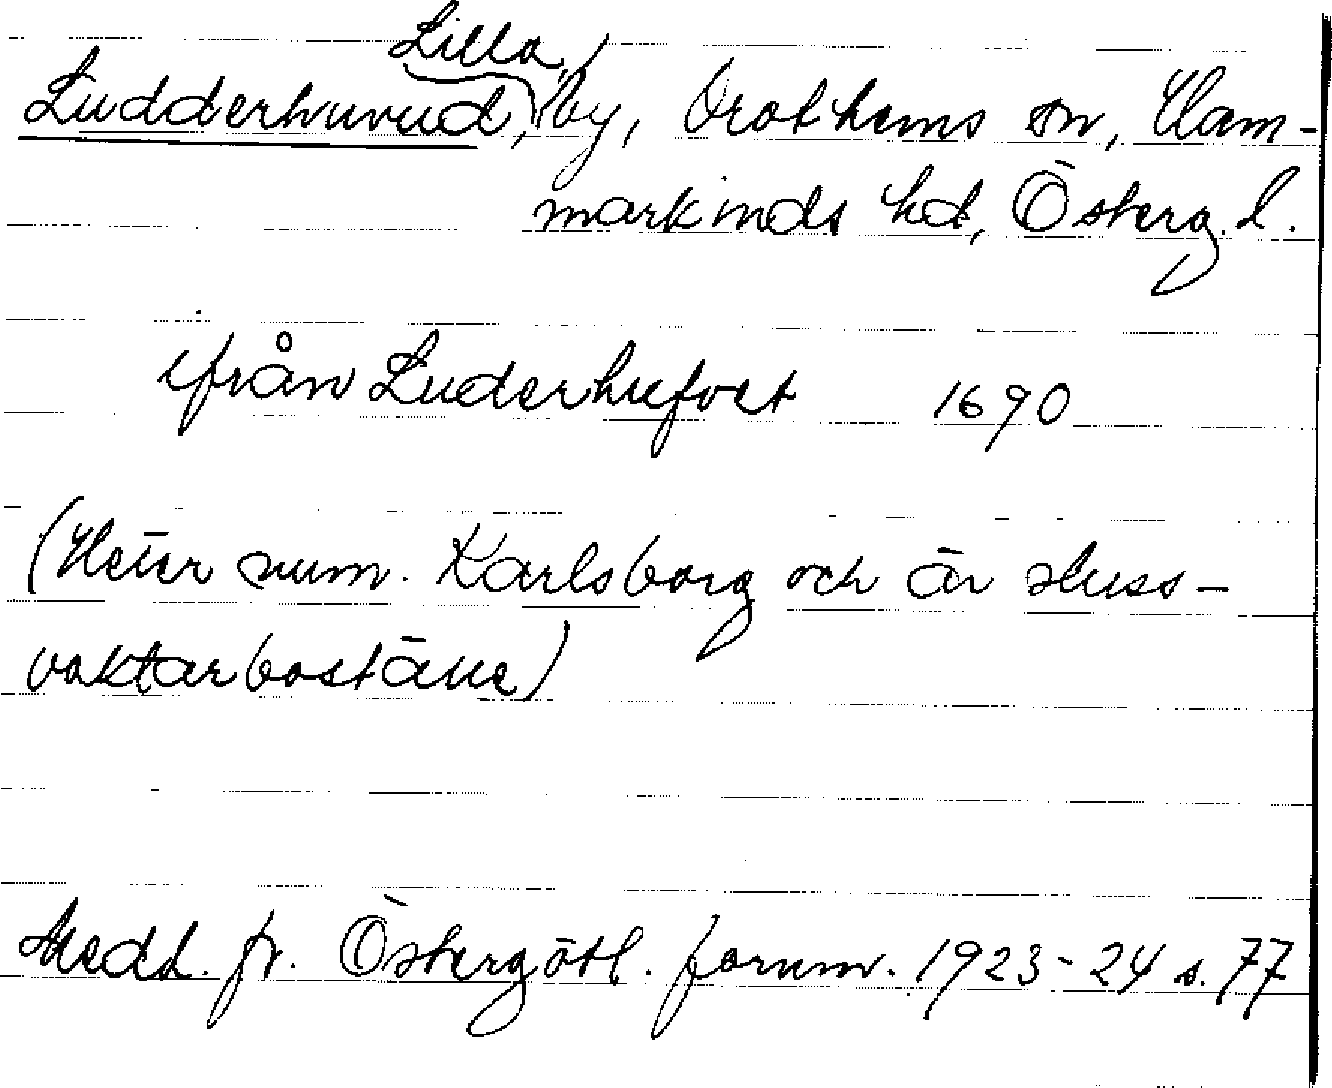 Ludderhuvud, Lilla, by, Drothems sn, Ham-
markinds hd, Österg. l.
ifrån Luderhufvet 1690
(Heter num. Karlsborg och är sluss-
vaktarboställe)
Medd. fr. Östergötl. fornm. 1923-24 s. 77